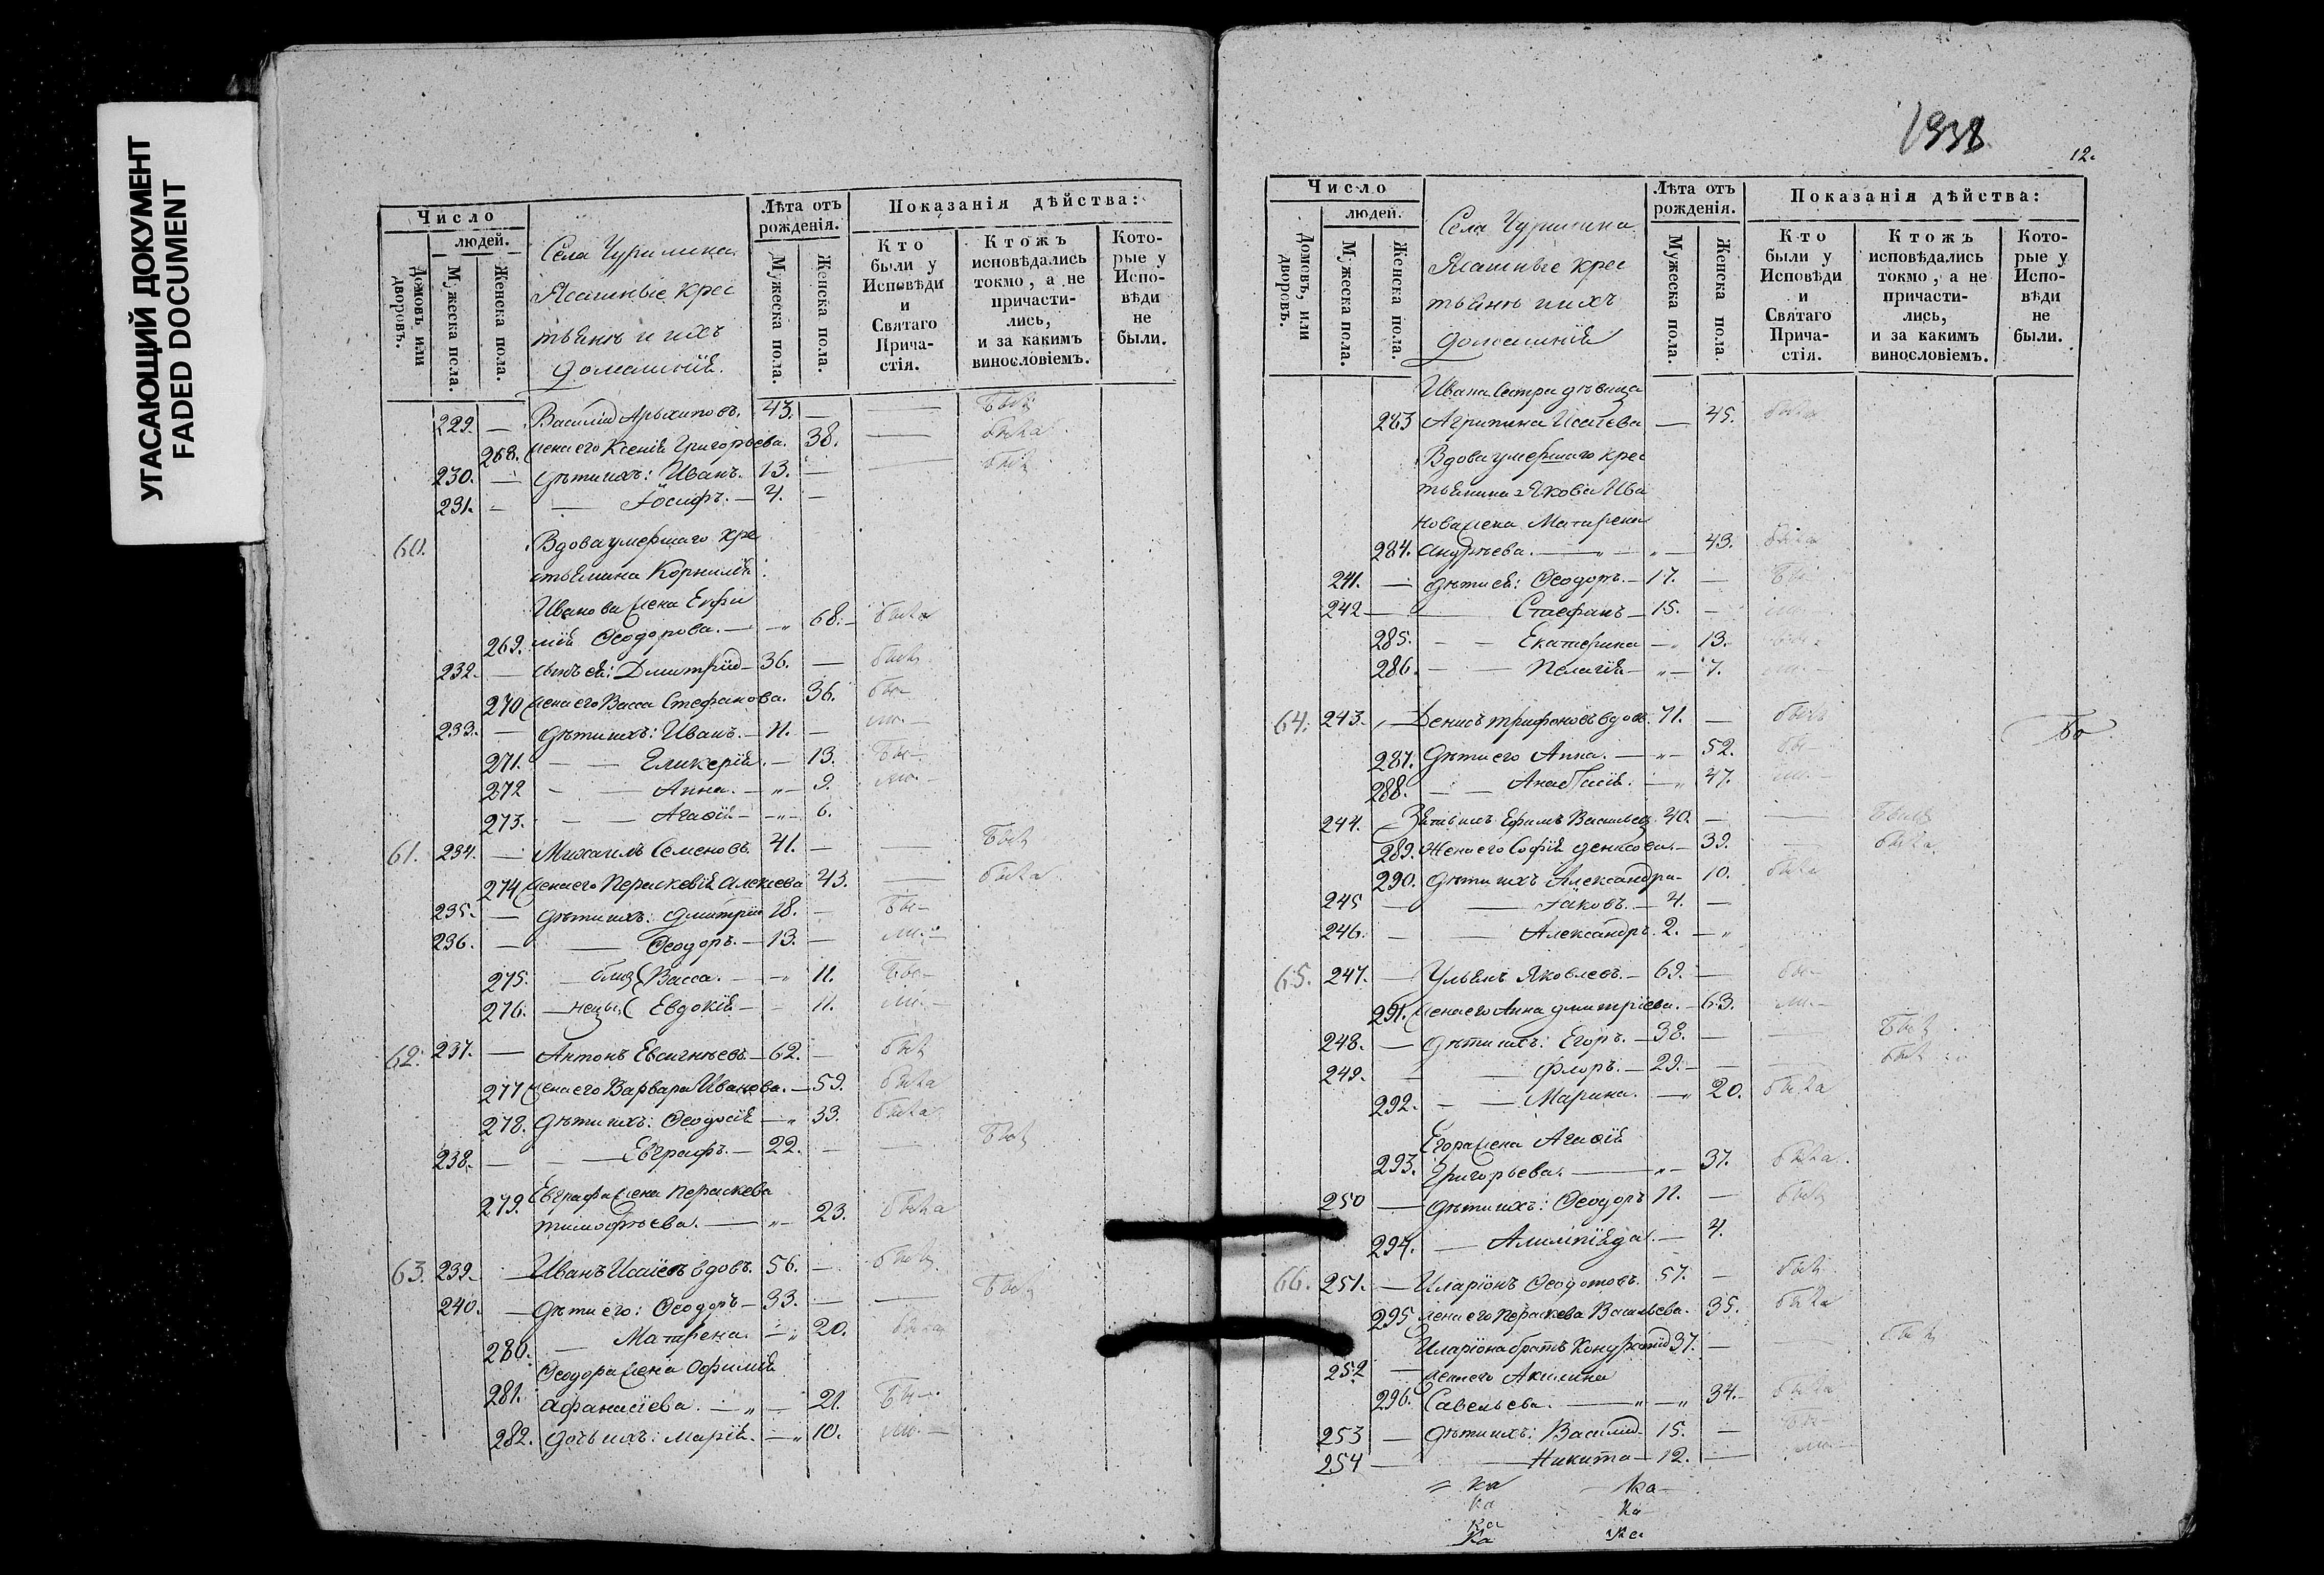 УГАСАЮЩИЙ ДОКУМЕНТ
FADED DOCUMENT
Число
людей.
Домовъ или дворовъ.
Мужеска пола.
Женска пола.
Села Чурилина
Ясашные крес
тьяне и ихъ
домашнія.
Лѣта отъ рожденія.
Мужеска пола.
Женска пола.
Показанія дѣйства:
Кто были у Исповѣди и Святаго Прича-стія.
Ктожъ исповѣдались токмо, а не причасти-лись, и за какимъ винословіемъ.
Кото-рые у Испо-вѣди не были.
229. — Василій Архиповъ. 43. — — былъ
268. жена его Ксенія Григорьева. 38. — была
230. — дѣти ихъ: Иванъ. 13. — — былъ
231. — — Іосифъ. — 4. —
60. Вдова умершаго кре
стьянина Корнилія
Иванова жена Евфи
269. мія Ѳеодорова. — „ 68. — была
232. — сынъ ея: Дмитрій — 36. — былъ
270 жена его Васса Стефанова. 36. бы —
233. — дѣти ихъ: Иванъ. — 11. — ли. —
271. — — Гликерія. — 13. бы —
272 — — Анна. — „ — 9. ли —
273. — — Агаѳія — „ — 6.
61. 234. — Михаилъ Семеновъ. 41. — — былъ
274 жена его Параскевія Алексѣева 43. — была
235. — дѣти ихъ: Дмитрій 18. — бы —
236. — — Ѳеодоръ. — 13. — ли. —
275. — близ Васса. — „ 11. бы —
276. — нецы Евдокія — — 11. ли. —
62. 237. — Антонъ Евсигнѣевъ — 62. — былъ
277 жена его Варвара Иванова. — 59. была
278. дѣти ихъ: Ѳеодосія — „ 33. была
238. — — Евграфъ. — 22. — — былъ
279. Евграфа жена Параскева
тимофѣева. — „ — 23. была
63. 239. — Иванъ Исаіевъ вдовъ. 56. — былъ
240. — дѣти его: Ѳеодоръ — 33. — — былъ
280. — Матрена. — „ 20. была
Ѳеодора жена Офимія
281. Афанасіева. — „ — 21. бы —
282. дочь ихъ: Марія. — „ 10. ли. —
12.
Число
людей.
Домовъ, или дворовъ.
Мужеска пола.
Женска пола.
Села Чурилина
Ясашные крес
тьяне и ихъ
домашнія
Лѣта отъ рожденія.
Мужеска пола.
Женска пола.
Показанія дѣйства:
Кто были у Исповѣди и Святаго Прича-стія.
Ктожъ исповѣдались токмо, а не причасти-лись, и за какимъ винословіемъ.
Кото-рые у Испо-вѣди не были.
Ивана сестра дѣвица
283 Агрипина Исаіева — 45. была
Вдова умершаго крес
тьянина Якова Ива
нова жена Матрена
284. Андрѣева. — „ — „ — 43. была
241. — дѣти ея: Ѳеодоръ. — 17. — бы
242 — — Стефанъ — 15. — ли
285. — — Екатерина — „ 13. бы —
286. — — Пелагія — „ — 7. ли. —
64. 243. — Денисъ Трифоновъ вдовъ. 71. — былъ
287. дѣти его Анна. — „ — 52. бы —
288. — — Анастасія. — „ 47. ли. —
244. — Зять ихъ Ефимъ Васильевъ. 40. — — былъ
289. Жена его Софія денисова. — 39. — была
290. дѣти ихъ Александра — 10. была
245 — — Іаковъ. — 4. —
246. — — Александръ. 2. — „
65. 247. — Ульянъ Яковлевъ. — 69. — бы —
291. жена его Анна Дмитріева. — 63. ли. —
248. — дѣти ихъ: Егоръ. — 38. — — былъ
249. — — Флоръ. — 29. — — былъ
292. — — Марина. — „ 20. была
Егора жена Агаѳія
293. Григорьева. — „ — 37. была
250 — дѣти ихъ: Ѳеодоръ 11. — былъ
294. — — 4.
66. 251. — Иларіонъ Ѳеодотовъ. 57. — былъ
295 жена его Параскева Васильева. 35. была
Иларіона братъ Кондратій 37. — — былъ
252 — жена его Акилина
296. Савельева. — „ — „ 34. — была
253 — дѣти ихъ: Василій — 15. — бы —
254 — — Никита — 12. — ли —
= ка — ка —
ка ка
ка ка
ка